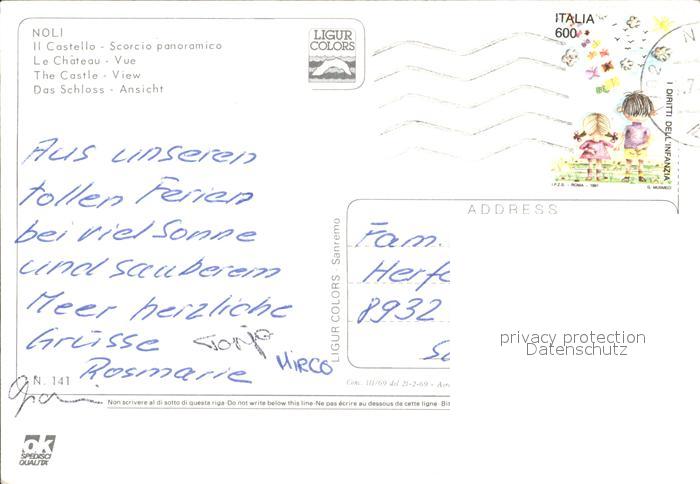 NOLI
Il Castello - Scorcio panoramico
Le Château - Vue
The Castle - View
Das Schloss - Ansicht
LIGUR
COLORS
ITALIA
600
I DIRITTI DELL'INFANZIA
I.P.Z.S. - ROMA - 1991
G. MUSMECI
Aus unseren
tollen Ferien
bei viel Sonne
und sauberem
Meer herzliche
Grüsse Tonja
Rosmarie MIRCO
N. 141
LIGUR COLORS Sanremo
ADDRESS
Fam.
Herf
8932
privacy protection
Datenschutz
Conc. III/69 del 21-2-69 -
Non scrivere al di sotto di questa riga - Do not write below this line - Ne pas écrire au dessous de cette ligne -
ok
SPEDISCI
QUALITA'